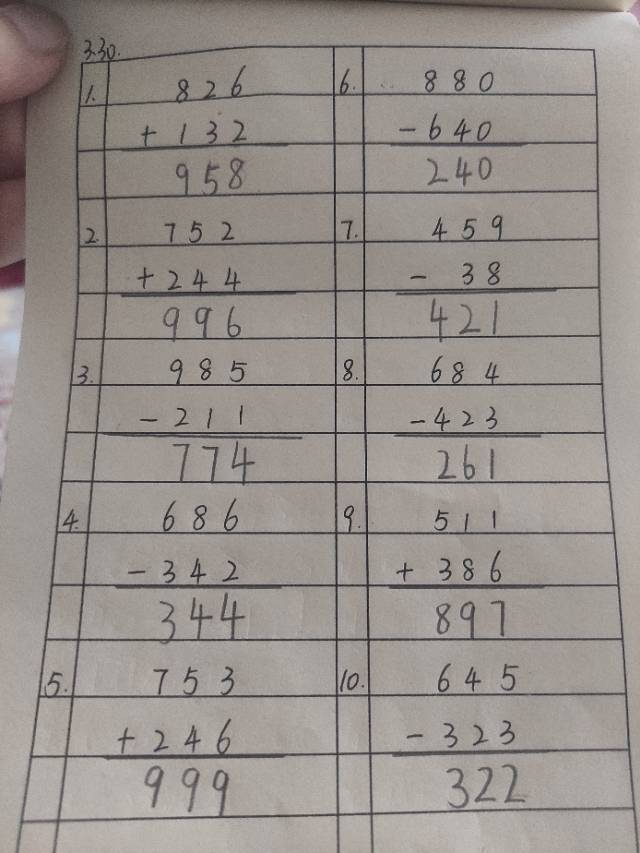 3.30.
1. 826
+132
958
2. 752
+244
996
3. 985
-211
774
4. 686
-342
344
5. 753
+246
999
6. 880
-640
240
7. 459
- 38
421
8. 684
-423
261
9. 511
+386
897
10. 645
-323
322